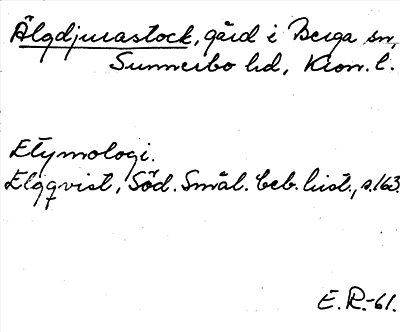 Älgdjurastock, gård i Berga sn,
Sunnerbo hd, Kron. l.
Etymologi.
Elgqvist, Söd. Smål. beb. hist., s. 163.
E. R.-61.